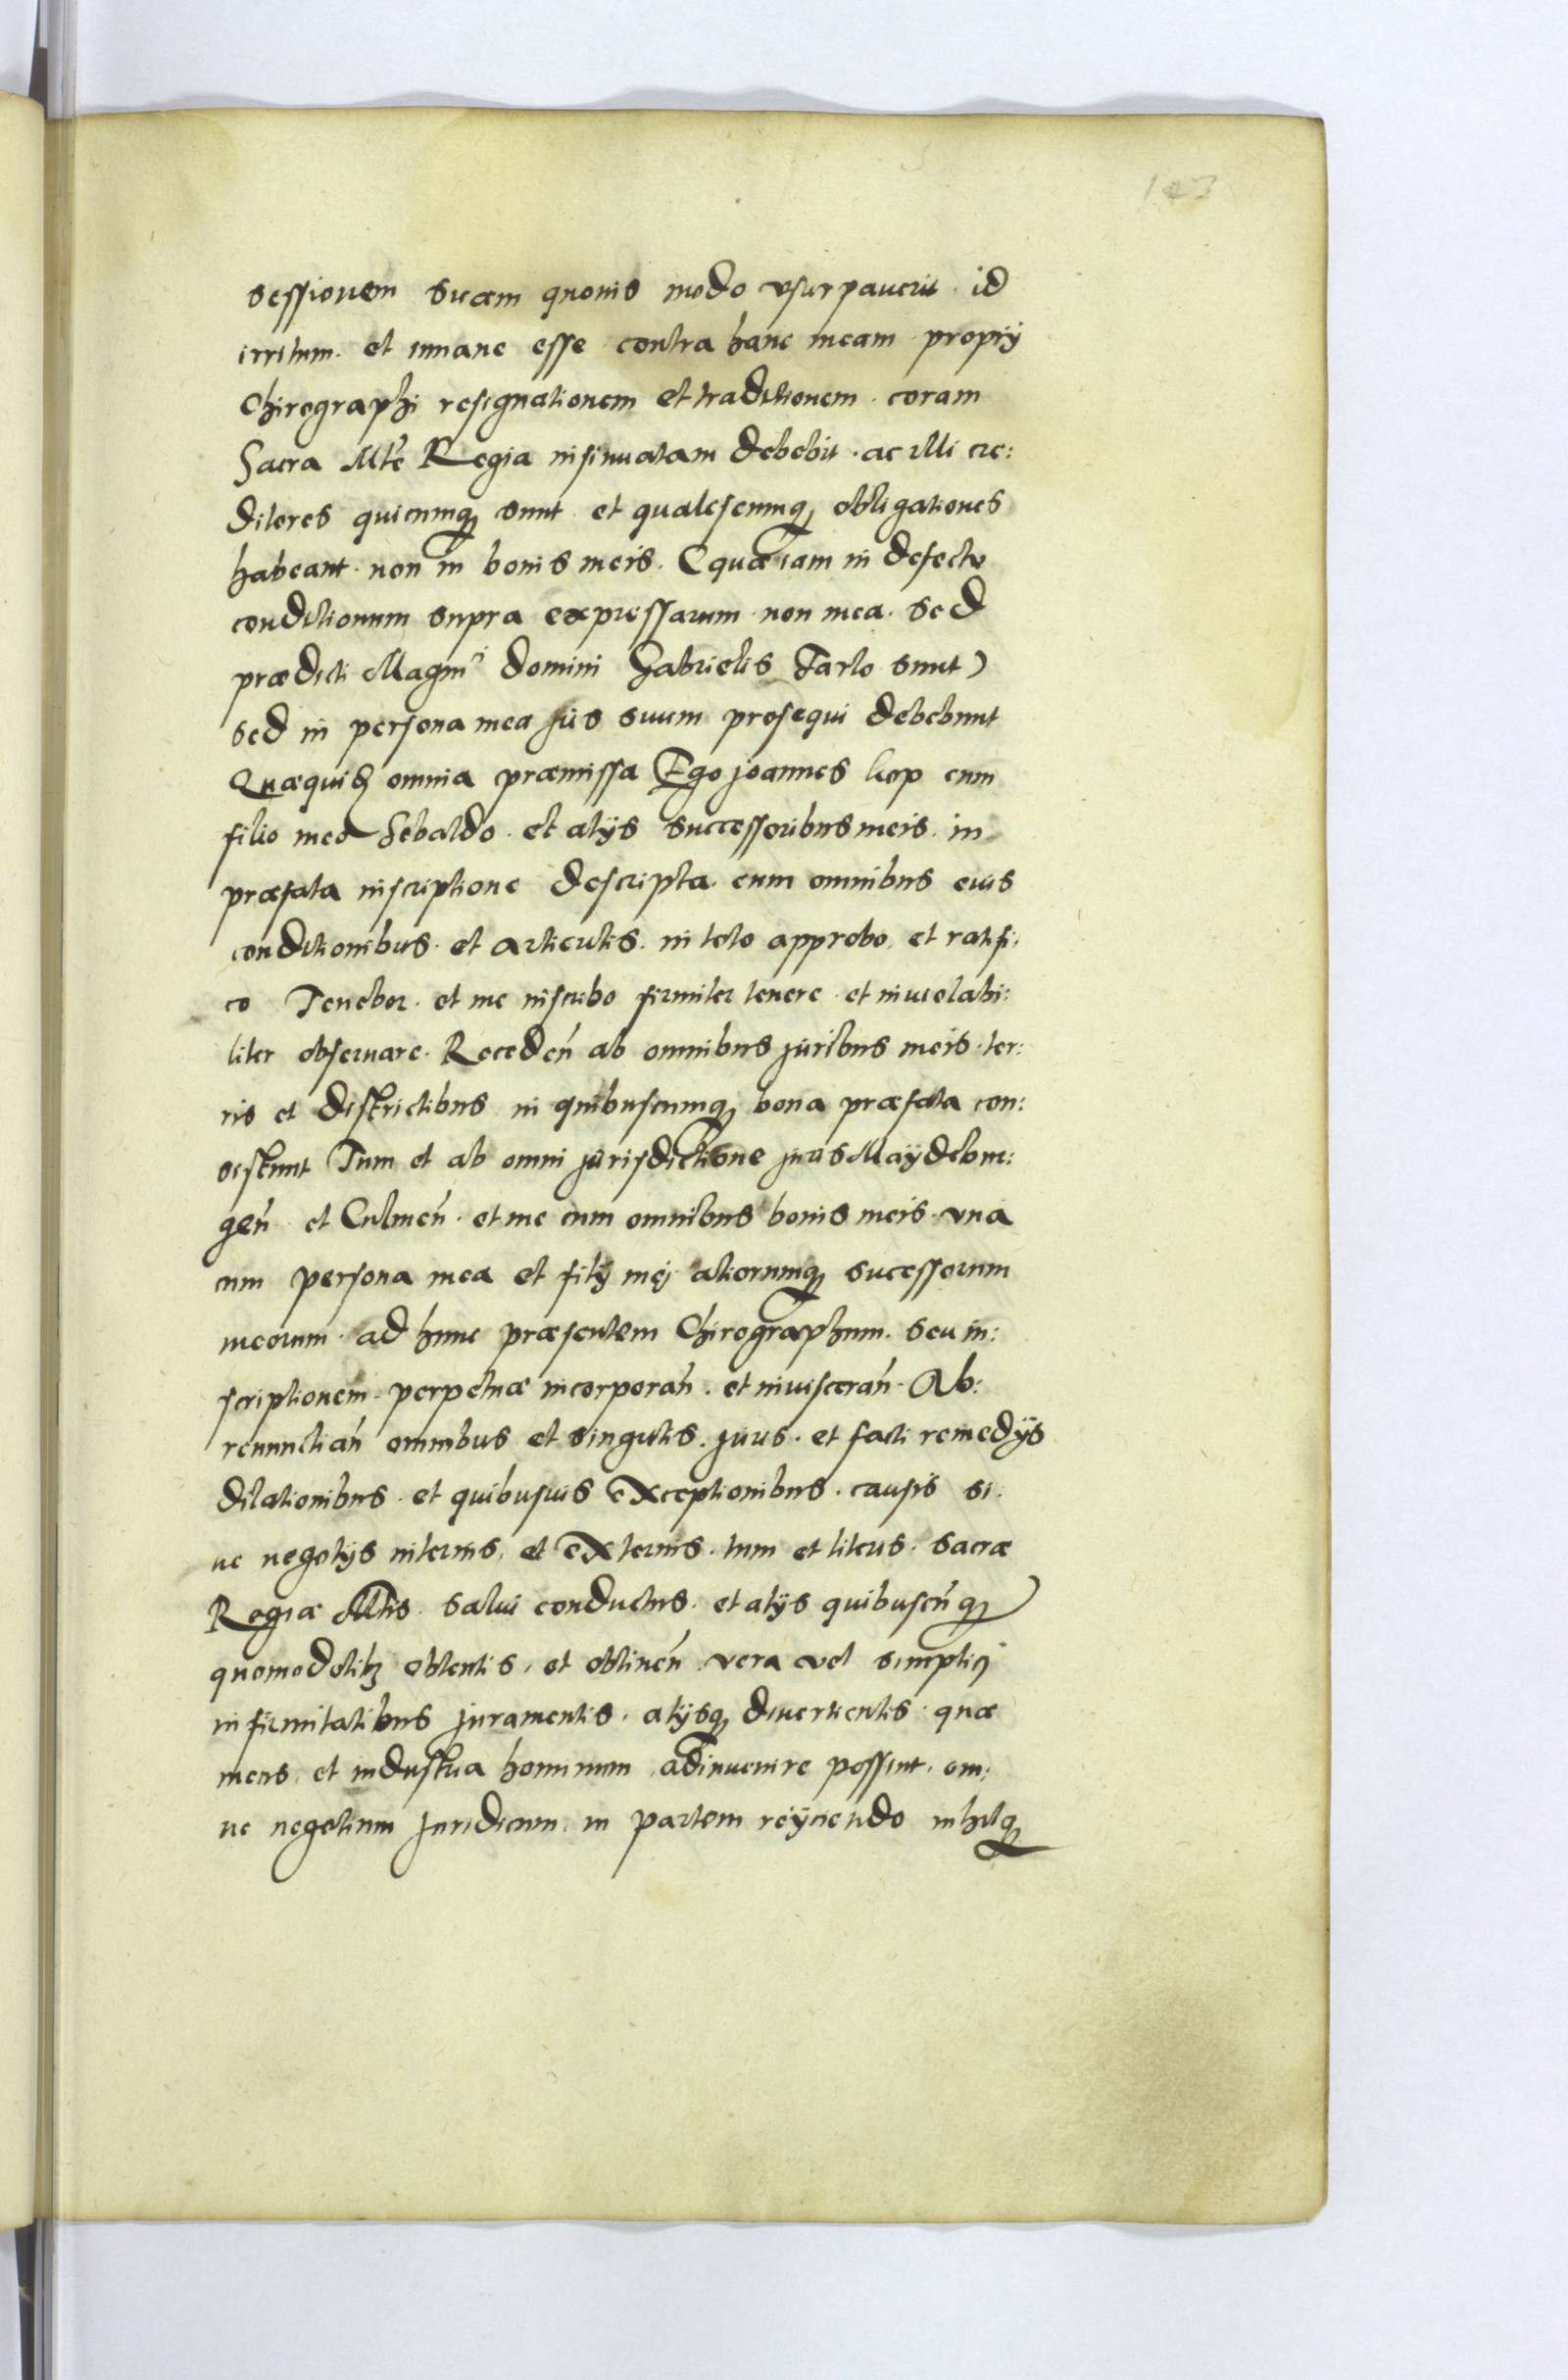 123
sessionem suam quouis modo vsurpauerit · id
irritum · et innane esse · contra hanc meam · proprÿ
Chirographi resignationem et traditionem · coram
Sacra Mte Regia insinuatam debebit · ac illi cre:
ditores quicumq₃ sunt · et qualescumq₃ obligationes
habeant · non in bonis meis · (quæ iam in defectu
conditionum supra expressarum · non mea · sed
prædicti Magnci domini Gabrielis Tarlo sunt)
sed in persona mea jus suum prosequi debebunt
Quæquid₃ omnia præmissa Ego joannes kop cum
filio meo Sebaldo · et alÿs successoribus meis · in
præfata inscriptione descripta · cum omnibus euis
conditionibus · et articulis · in toto approbo · et ratifi:
co Tenebor · et me inscribo firmiter tenere · et inuiolabi:
liter obseruare · Receden̄ ab omnibus juribus meis · ter:
ris et districtibus in quibuscumq₃ bona præfata con:
sistunt Tum et ab omni jurisdictione juris Maÿdebur:
gen̄ · et Culmen̄ · et me cum omnibus bonis meis · vna
cum persona mea et filÿ mej aliorumq₃ sucessorum
meorum · ad hunc præsentem Chirographum · seu in:
scriptionem · perpetuæ incorporan̄ · et inuisceran̄ · Ab:
renuncian̄ omnibus et singulis · juris · et facti remedÿs
dilationibus · et quibusuis exceptionibus · causis si:
ue negotÿs internis · et externis · tum et literis · sacræ
Regiæ Mtis · salui conductus · et alÿs quibuscūq₃
quomodolib₃ obtentis · et obtinen̄ · vera vel simplicj
infirmitatibus juramentis · alÿsq₃ diuerticulis · quæ
mens · et industria hominum adinuenire possint · om:
ne negotium juridicum · in partem reÿciendo nihilq₃